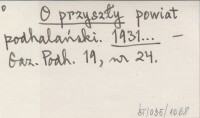 O przyszły powiat
podhalański. 1931... —
Gaz. Podh. 19, nr 24.